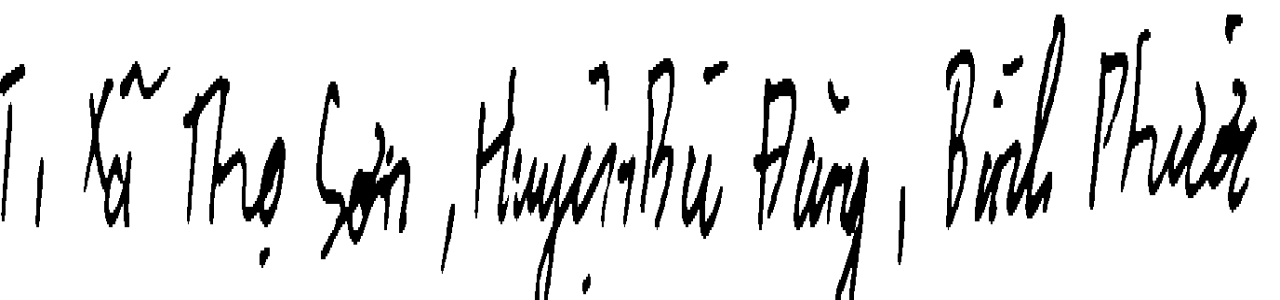 1, Xã Thọ Sơn, Huyện Bù Đăng, Bình Phước